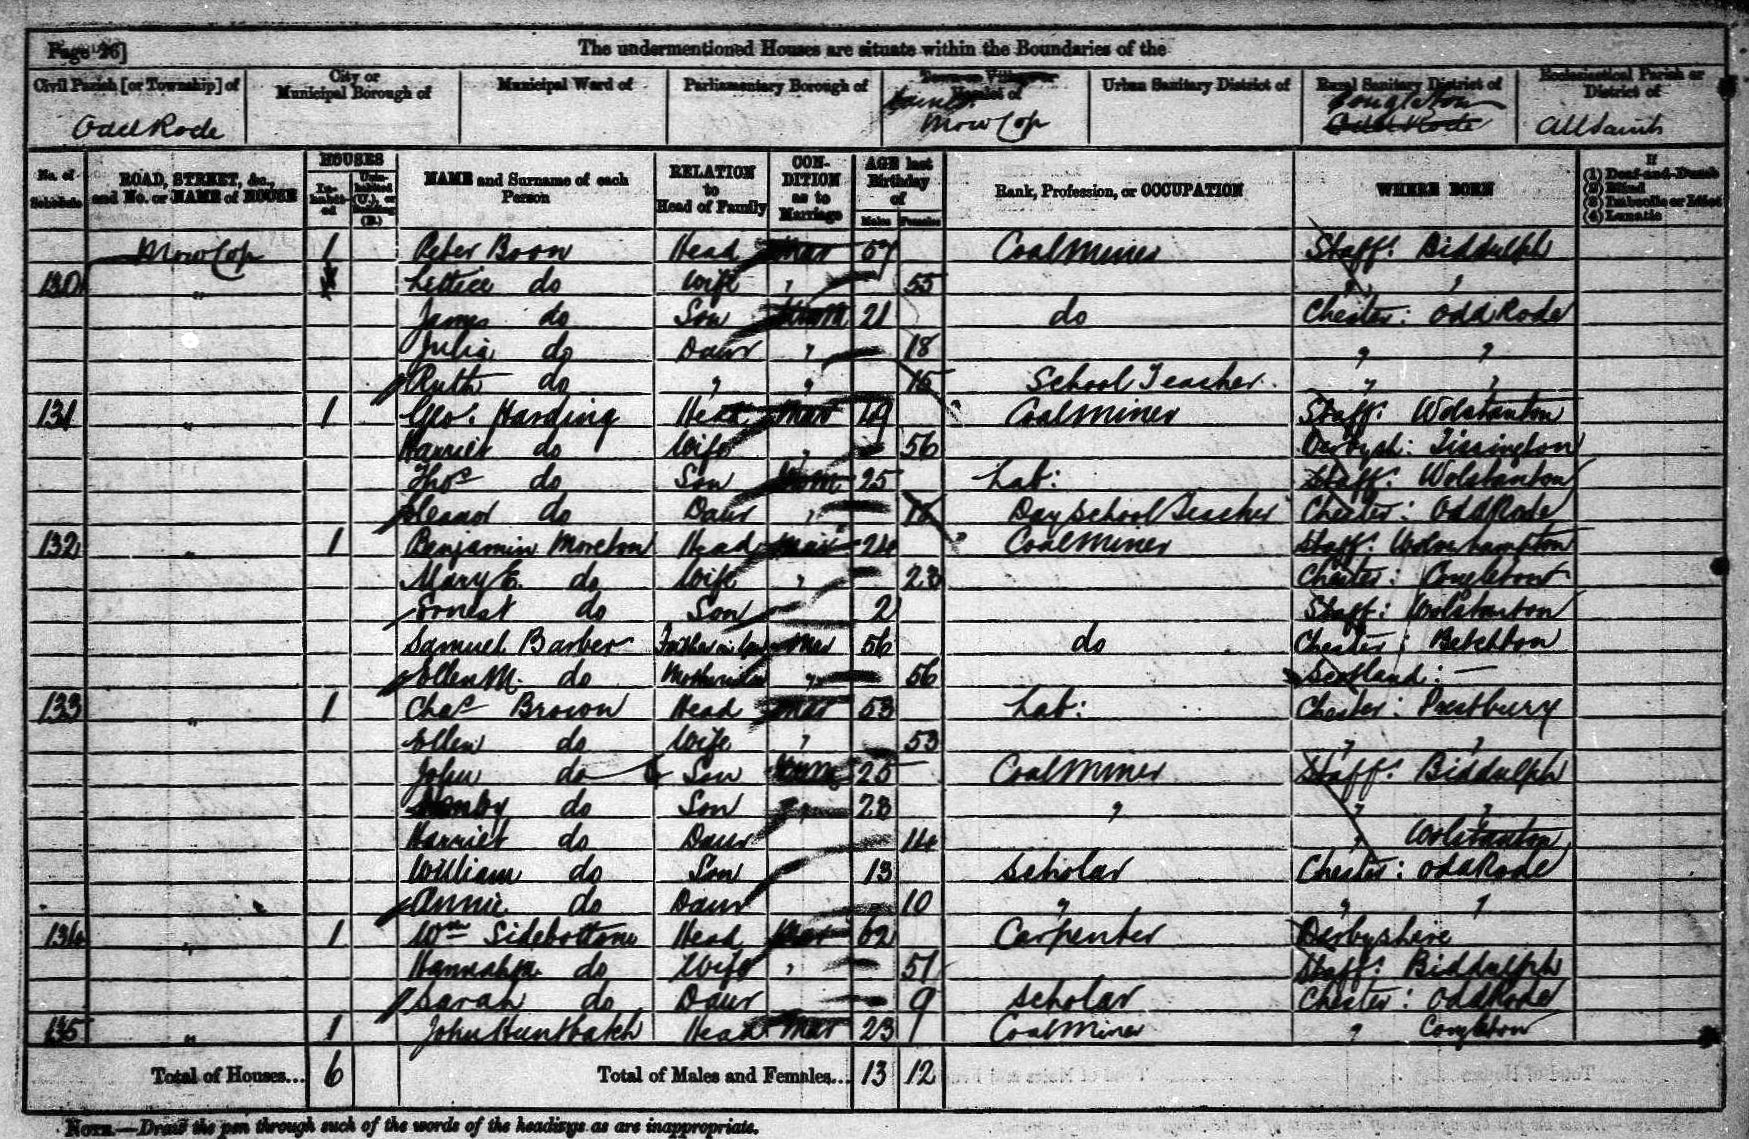 Page 26]
The undermentioned Houses are situate within the Boundaries of the
Civil Parish [or Township] of
City or Municipal Borough of
Municipal Ward of
Parliamentary Borough of
Town or Village or Hamlet of
Urban Sanitary District of
Rural Sanitary District of
Ecclesiastical Parish or District of
Odd Rode
Mow Cop
Congleton
Odd Rode
All Saints
No. of Schedule
ROAD, STREET, &c., and No. or NAME of HOUSE
HOUSES
Inhabited
Uninhabited (U.), or Building (B.)
NAME and Surname of each Person
RELATION to Head of Family
CONDITION as to Marriage
AGE last Birthday of
Males
Females
Rank, Profession, or OCCUPATION
WHERE BORN
If
(1) Deaf-and-Dumb
(2) Blind
(3) Imbecile or Idiot
(4) Lunatic
Mow Cop 1 Peter Boon Head Mar 57 Coal Miner Staff: Biddulph
130 " Lettice do Wife " 55 " "
James do Son Unm 21 do Chester: Odd Rode
Julia do Daur " 18 " "
Ruth do " " 15 School Teacher " "
131 " 1 Geo: Harding Head Mar 49 Coal Miner Staff: Wolstanton
Harriet do Wife " 56 Derbysh: Tissington
Thos do Son Unm 25 Lab: Staff: Wolstanton
Eleanor do Daur " 16 Day School Teacher Chester: Odd Rode
132 " 1 Benjamin Moreton Head Mar 24 Coal Miner Staff: Wolverhampton
Mary E. do Wife " 23 Chester: Congleton
Ernest do Son 2 Staff: Wolstanton
Samuel Barber Father in law Mar 56 do Chester: Betchton
Ellen M. do Mother in law " 56 Scotland: —
133 " 1 Chas Brown Head Mar 53 Lab: Chester: Prestbury
Ellen do Wife " 53 " "
John do Son Unm 25 Coal Miner Staff: Biddulph
do Son " 23 " " "
Harriet do Daur 14 " Wolstanton
William do Son 13 Scholar Chester: Odd Rode
Annie do Daur 10 " " "
134 " 1 Wm Sidebottom Head Mar 62 Carpenter Derbyshire
Hannah do Wife " 51 Staff: Biddulph
Sarah do Daur 9 Scholar Chester: Odd Rode
135 " 1 John Huntbatch Head Mar 23 Coal Miner " Congleton
Total of Houses... 6
Total of Males and Females... 13 12
NOTE.—Draw the pen through such of the words of the headings as are inappropriate.